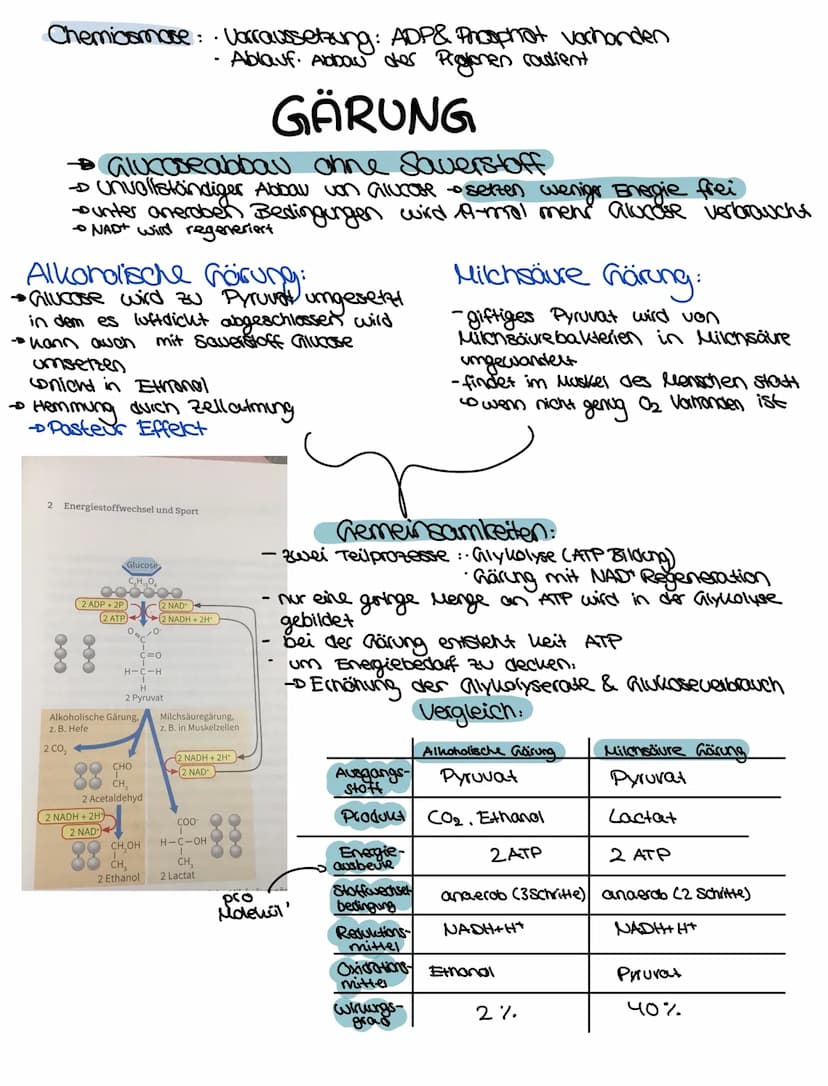 Chemiosmose: · Vorraussetzung: ADP & Phosphat vorhanden
· Ablauf: Abbau der Protonen
GÄRUNG
→ Glucoseabbau ohne Sauerstoff
→ Unvollständiger Abbau von Glucose → setzen weniger Energie frei
→ unter aneroben Bedingungen wird mehr Glucose verbraucht
→ NAD+ wird regeneriert
Alkoholische Gärung:
→ Glucose wird zu Pyruvat umgesetzt
in dem es luftdicht abgeschlossen wird
→ kann auch mit Sauerstoff Glucose
umsetzen
↳ nicht in Ethanol
→ Hemmung durch Zellatmung
→ Pasteur Effekt
Milchsäure Gärung:
- giftiges Pyruvat wird von
Milchsäurebakterien in Milchsäure
umgewandelt
- findet im Muskel des Menschen statt
↳ wenn nicht genug O2 vorhanden ist
2 Energiestoffwechsel und Sport
Glucose
C6H12O6
2 ADP + 2P
2 NAD+
2 ATP
2 NADH + 2H+
O O-
C
C=O
H-C-H
H
2 Pyruvat
Alkoholische Gärung,
z. B. Hefe
Milchsäuregärung,
z. B. in Muskelzellen
2 CO2
2 NADH + 2H+
2 NAD+
CHO
CH3
2 Acetaldehyd
2 NADH + 2H+
2 NAD+
CH2OH
CH3
2 Ethanol
COO-
H-C-OH
CH3
2 Lactat
Gemeinsamkeiten:
- zwei Teilprozesse: · Glykolyse (ATP Bildung)
· Gärung mit NAD+ Regeneration
- nur eine geringe Menge an ATP wird in der Glykolyse
gebildet
- bei der Gärung entsteht keit ATP
· um Energiebedarf zu decken:
→ Erhöhung der Glykolyserate & Glukoseverbrauch
Vergleich:
Alkoholische Gärung Milchsäure Gärung
Ausgangs-
stoff Pyruvat Pyruvat
Produkt CO2, Ethanol Lactat
Energie-
ausbeute 2 ATP 2 ATP
pro
Molekül
Stoffwechsel
bedingung anaerob (3 Schritte) anaerob (2 Schritte)
Reduktions-
mittel NADH+H+ NADH+H+
Oxidations-
mittel Ethanal Pyruvat
Wirkungs-
grad 2% 40%